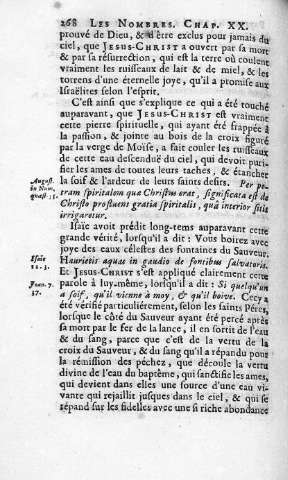 268 LES NOMBRES. CHAP. XX.
prouvé de Dieu, & d'être exclus pour jamais du
ciel, que JESUS-CHRIST a ouvert par sa mort
& par sa résurrection, qui est la terre où coulent
vraiment les ruisseaux de lait & de miel, & les
torrens d'une éternelle joye, qu'il a promise aux
Israëlites selon l'esprit.
C'est ainsi que s'explique ce qui a été touché
auparavant, que JESUS-CHRIST est vraiment
cette pierre spirituelle, qui ayant été frappée à
la passion, & jointe au bois de la croix figuré
par la verge de Moïse, a fait couler les ruisseaux
de cette eau descenduë du ciel, qui devoit puri-
fier les ames de toutes leurs taches, & étancher
la soif & l'ardeur de leurs saints desirs. Per pe-
August.
in Num.
quæst. 35.
tram spiritalem quæ Christus erat, significata est de
Christo profluens gratia spiritalis, quâ interior sitis
irrigaretur.
Isaïe avoit prédit long-tems auparavant cette
grande vérité, lorsqu'il a dit : Vous boirez avec
joye des eaux célestes des fontaines du Sauveur.
Isaïe
12. 3.
Haurietis aquas in gaudio de fontibus salvatoris.
Et JESUS-CHRIST s'est appliqué clairement cette
Joan. 7.
37.
parole à luy-même, lorsqu'il a dit : Si quelqu'un
a soif, qu'il vienne à moy, & qu'il boive. Cecy a
été vérifié particulierement, selon les saints Péres,
lorsque le côté du Sauveur ayant été percé après
sa mort par le fer de la lance, il en sortit de l'eau
& du sang, parce que c'est de la vertu de la
croix du Sauveur, & du sang qu'il a répandu pour
la rémission des péchez, que découle la vertu
divine de l'eau du baptême, qui sanctifie les ames,
qui devient dans elles une source d'une eau vi-
vante qui rejaillit jusques dans le ciel, & qui se
répand sur les fidelles avec une si riche abondance